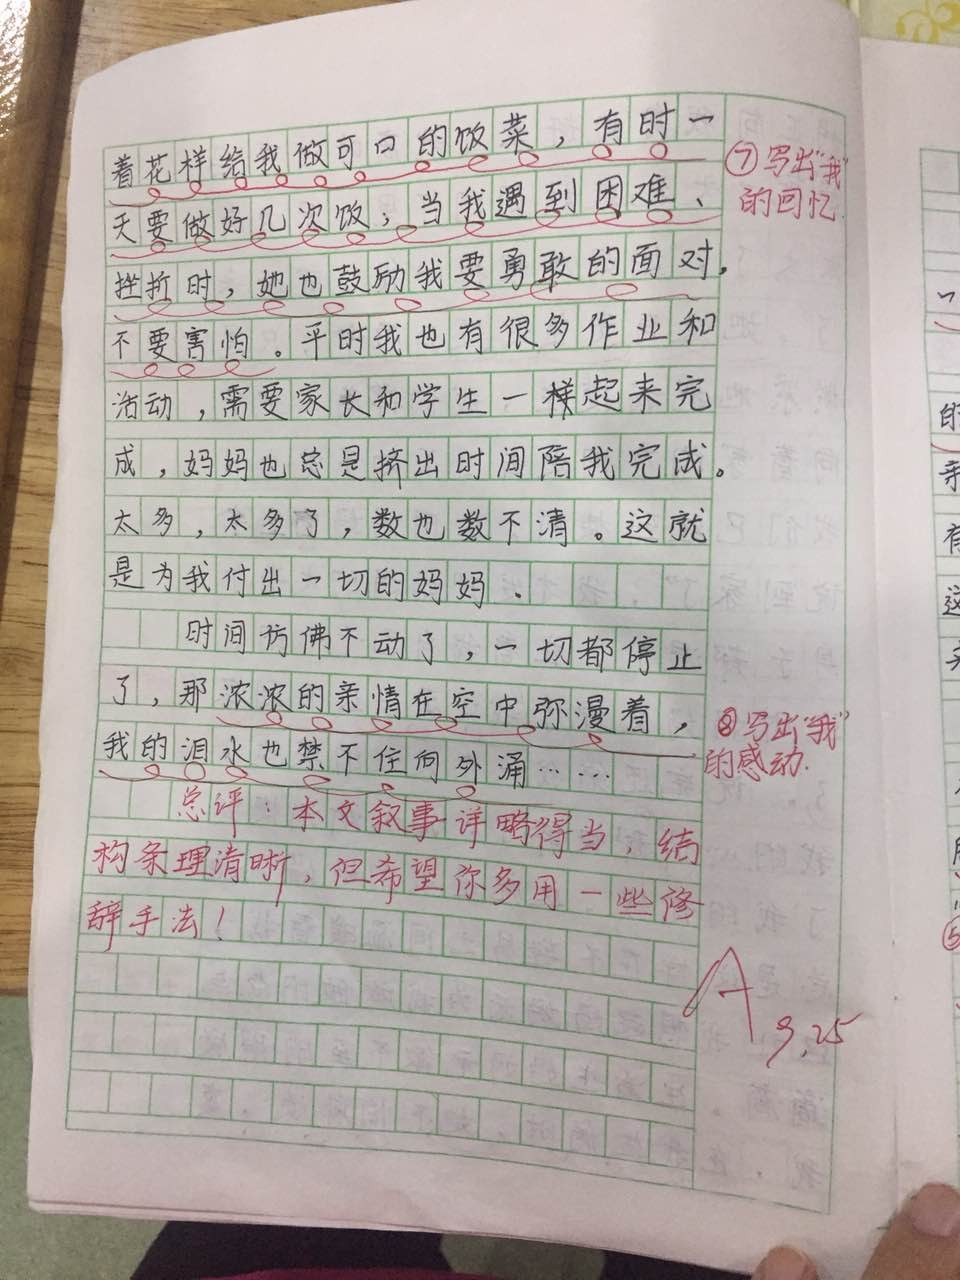 着花样给我做可口的饭菜，有时一
天要做好几次饭；当我遇到困难、
挫折时，她也鼓励我要勇敢的面对，
不要害怕。平时我也有很多作业和
活动，需要家长和学生一样起来完
成，妈妈也总是挤出时间陪我完成。
太多，太多了，数也数不清。这就
是为我付出一切的妈妈、
时间仿佛不动了，一切都停止
了，那浓浓的亲情在空中弥漫着，
我的泪水也禁不住向外涌……
总评：本文叙事详略得当，结
构条理清晰，但希望你多用一些修
辞手法！
⑦写出“我”
的回忆.
⑧写出“我”
的感动.
A
9.25
一
的
亲
有
这
⑤